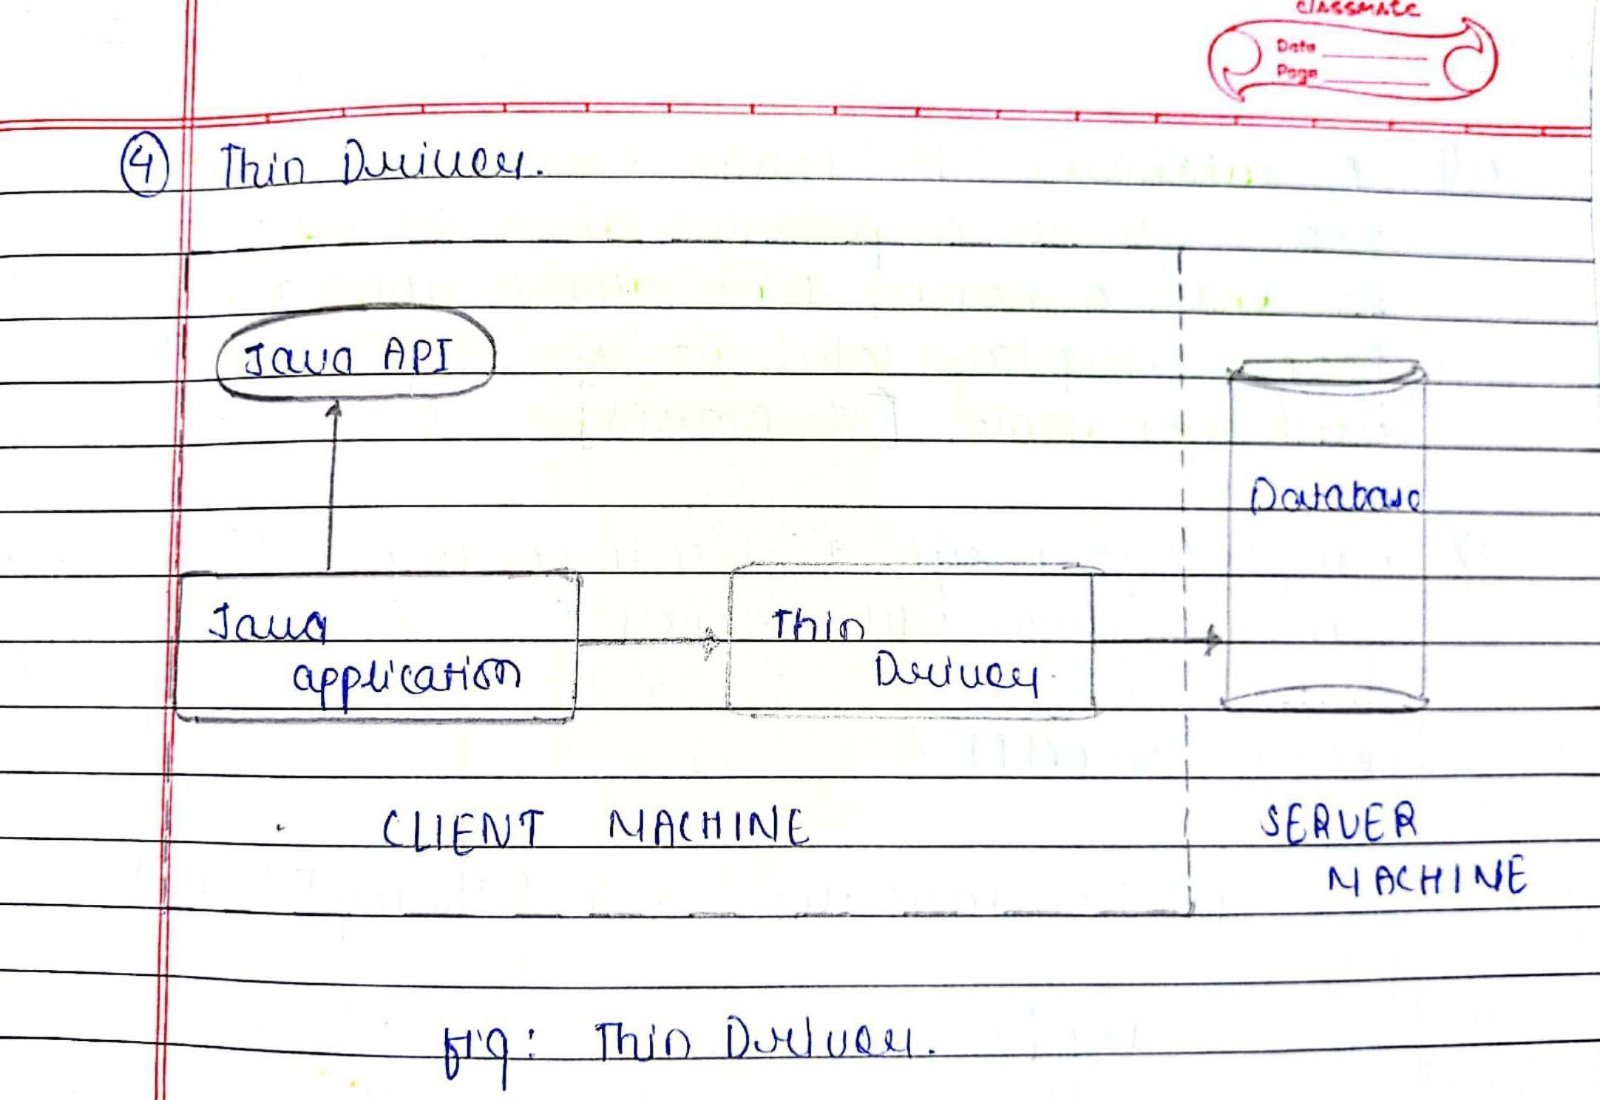 classmate
Date
Page
④ Thin Driver.
Java API
Database
Java
application
Thin
Driver.
CLIENT MACHINE
SERVER
MACHINE
fig: Thin Driver.